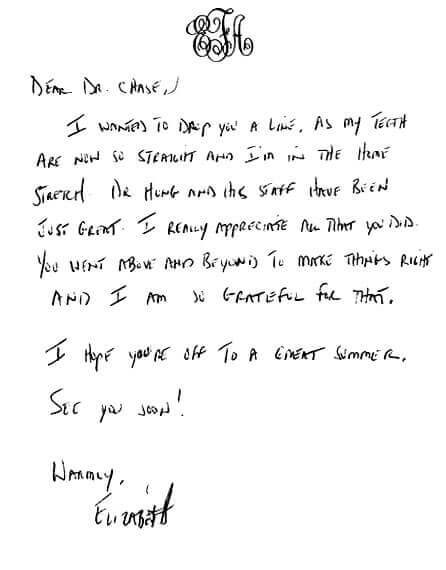 EFH
DEAR DR. CHASE,
I WANTED TO DROP YOU A LINE, AS MY TEETH
ARE NOW SO STRAIGHT AND I'M IN THE HOME
STRETCH. DR HUNG AND HIS STAFF HAVE BEEN
JUST GREAT. I REALLY APPRECIATE ALL THAT YOU DID.
YOU WENT ABOVE AND BEYOND TO MAKE THINGS RIGHT
AND I AM SO GRATEFUL FOR THAT.
I HOPE YOU'RE OFF TO A GREAT SUMMER.
SEE YOU SOON!
WARMLY,
ELIZABETH